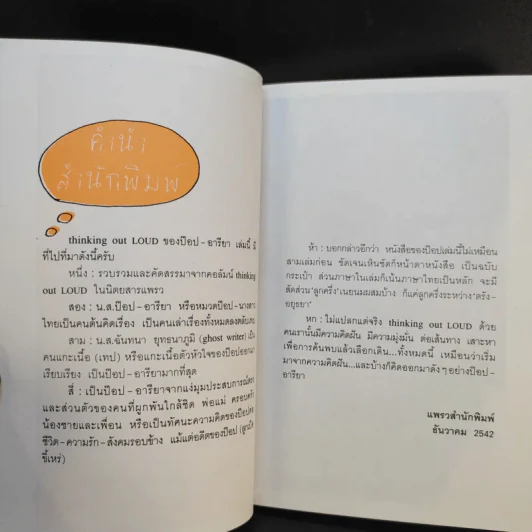 คำนำ
สำนักพิมพ์
thinking out LOUD ของป๊อป-อารียา เล่มนี้ มี
ที่ไปที่มาดังนี้ครับ
หนึ่ง : รวบรวมและคัดสรรมาจากคอลัมน์ thinking
out LOUD ในนิตยสารแพรว
สอง : น.ส.ป๊อป-อารียา หรือหมวดป๊อป-นางสาว
ไทยเป็นคนต้นคิดเรื่อง เป็นคนเล่าเรื่องทั้งหมดลงตลับเทป
สาม : น.ส.อันทนา ยุทธนาภูมิ (ghost writer) เป็น
คนแกะเนื้อ (เทป) หรือแกะเนื้อตัวหัวใจของป๊อปออกมา
เรียบเรียง เป็นป๊อป-อารียามากที่สุด
สี่ : เป็นป๊อป-อารียาจากแง่มุมประสบการณ์ตรง
และส่วนตัวของคนที่ผูกพันใกล้ชิด พ่อแม่ ครอบครัว
น้องชายและเพื่อน หรือเป็นทัศนะความคิดของป๊อปต่อ
ชีวิต-ความรัก-สังคมรอบข้าง แม้แต่อดีตของป๊อป (ลูกเป็ด
ขี้เหร่)
ห้า : บอกกล่าวอีกว่า หนังสือของป๊อปเล่มนี้ไม่เหมือน
สามเล่มก่อน ชัดเจนเห็นชัดก็หน้าตาหนังสือ เป็นฉบับ
กระเป๋า ส่วนภาษาในเล่มก็เน้นภาษาไทยเป็นหลัก จะมี
สัดส่วน'ลูกครึ่ง'เนยนมผสมบ้าง ก็แค่ลูกครึ่งระหว่าง'ตรัง-
อยุธยา'
หก : ไม่แปลกแต่จริง thinking out LOUD ด้วย
คนเรานั้นมีความคิดฝัน มีความมุ่งมั่น ต่อเส้นทาง เสาะหา
เพื่อการค้นพบแล้วเลือกเดิน...ทั้งหมดนี้ เหมือนว่าเริ่ม
มาจากความคิดฝัน...และบ้างก็คิดออกมาดังๆอย่างป๊อป-
อารียา
แพรวสำนักพิมพ์
ธันวาคม 2542